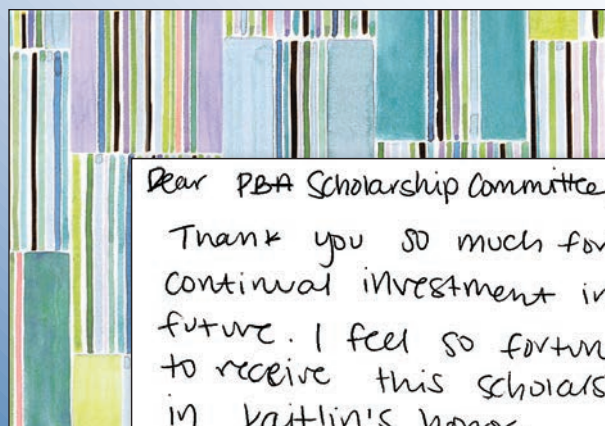 Dear PBA Scholarship Committee
Thank you so much for
continual investment in
future. I feel so fortun
to receive this scholars
in Kaitlin's honor